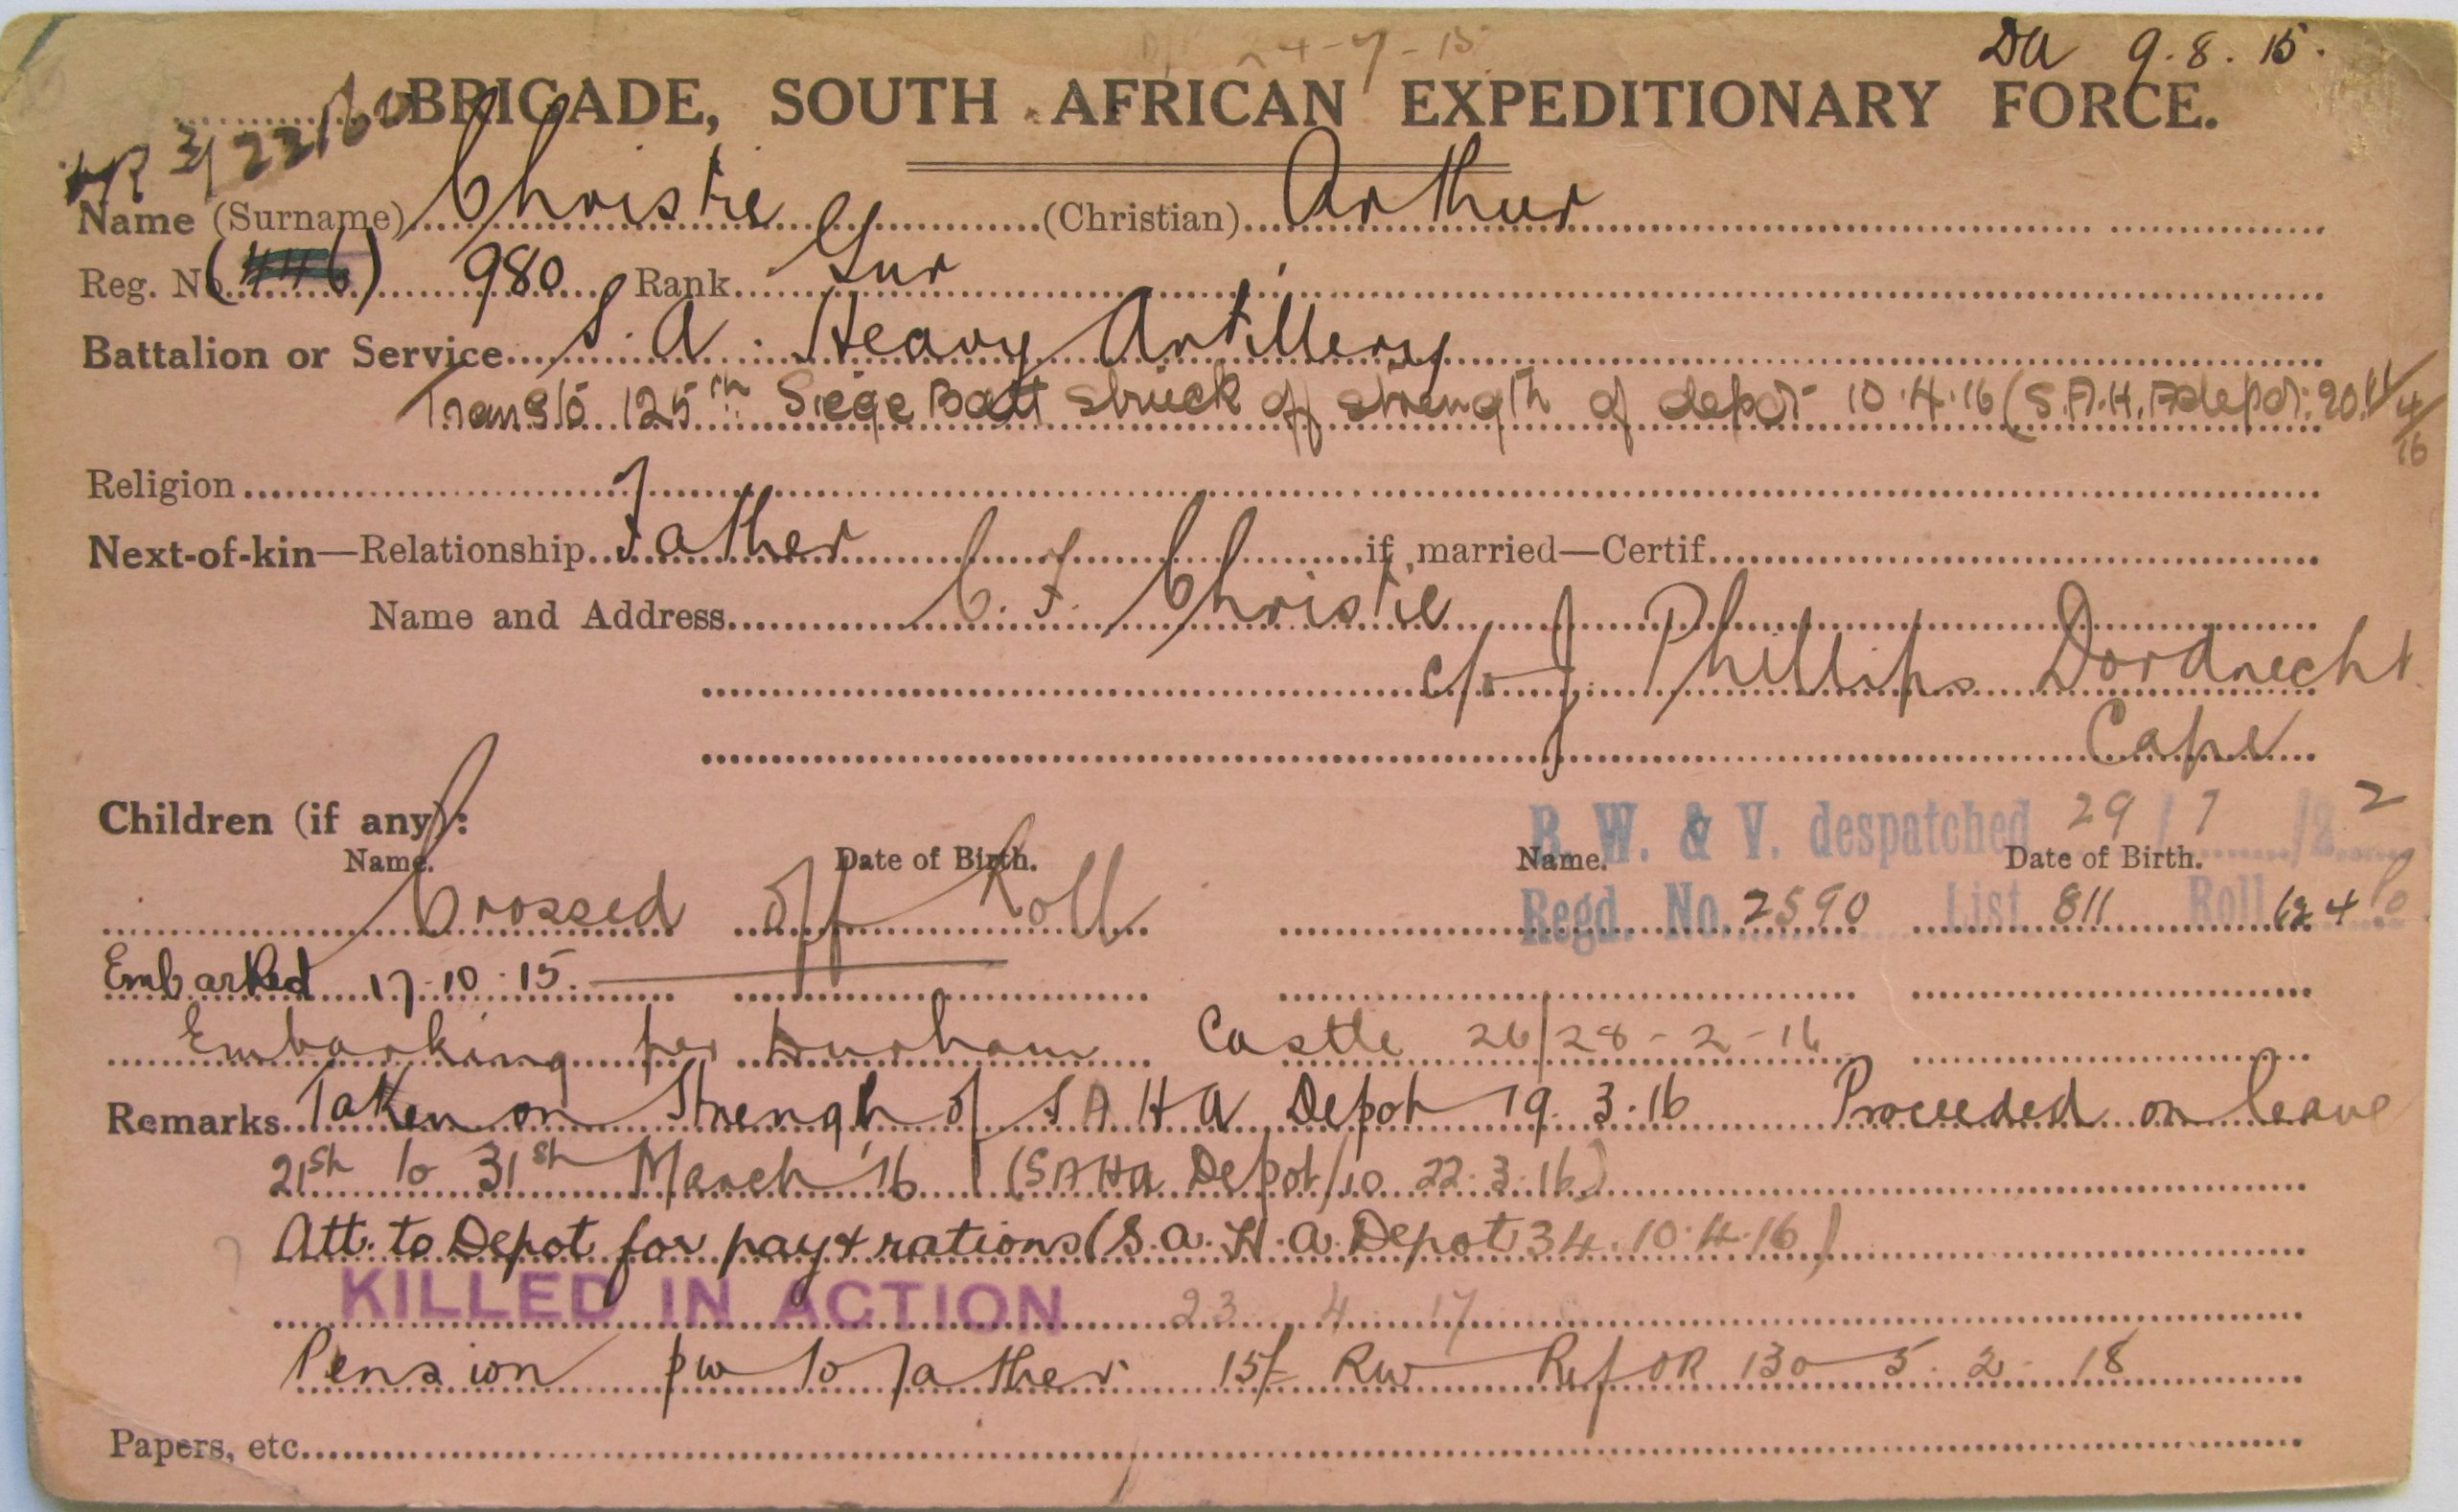 24-7-15 DA 9.8.15.
BRIGADE, SOUTH AFRICAN EXPEDITIONARY FORCE.
Name (Surname) Christie (Christian) Arthur
Reg. No. 980 Rank Gnr
Battalion or Service S. A. Heavy Artillery
Trans to 125th Siege Batt struck off strength of depot 10.4.16 (S.A.H.A depot. 20. 11/4/16
Religion
Next-of-kin—Relationship Father if married—Certif
Name and Address C. F. Christie
c/o J. Phillips Dordrecht
Cape
Children (if any): B. W. & V. despatched 29/7/22
Name. Date of Birth. Name. Date of Birth.
Crossed off Roll Regd. No. 2590 List 811 Roll
Embarked 17.10.15.
Embarking per Durham Castle 26/28-2-16
Remarks Taken on Strength of S A H A Depot 19.3.16 Proceeded on leave
21st to 31st March '16 (SAHA Depot/10 22.3.16)
Att. to Depot for pay & rations (S.A.H.A. Depot 34. 10.4.16)
KILLED IN ACTION 23 4 17
Pension pw to father 15/= RW Ref OR 130 5.2.18
Papers, etc.